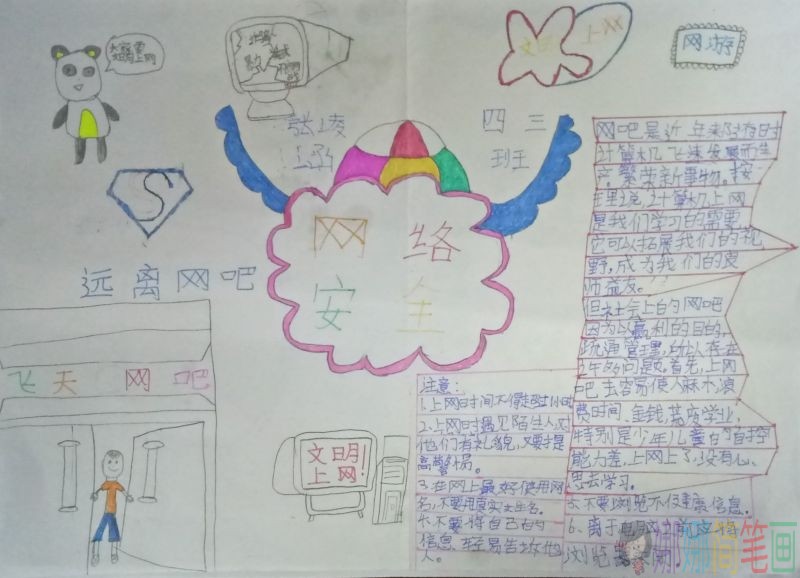 上网
网游
四三
班
S
网络
安全
远离网吧
飞天网吧
文明
上网!
网吧是近年来随着时
计算机飞速发展而生
繁荣新事物。按
是我们学习的需要
它可以拓展我们的视
野,成为我们的良
师益友。
但社会上的网吧
因为以赢利的目的
疏通管理,所以存在
许多问题。首先,上网
吧去容易使人麻木浪
费时间、金钱,荒废学业,
特别是少年儿童的自控
能力差,上网上了没有心
思去学习。
注意:
2.上网时遇见陌生人对
他们有礼貌,又要提
高警惕。
3.在网上最好使用网
名,不要用真实姓名。
4.不要将自己的
信息、轻易告诉他
人。
5.不要浏览不健康信息。
6.
娜娜简笔画